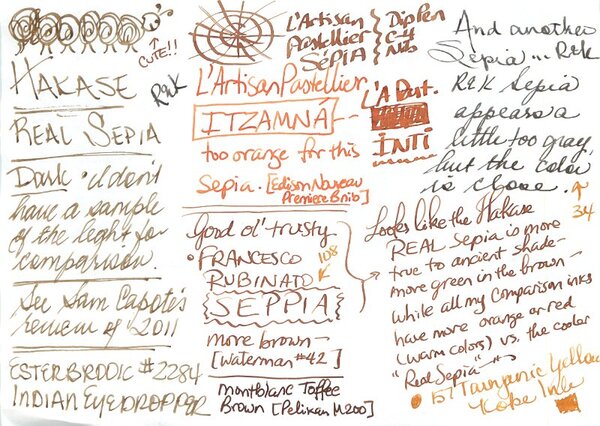 CUTE!!
HAKASE
R&K
REAL SEPIA
Dark - I don't
have a sample
of the light for
comparison.
See Sam Capote's
review of 2011
ESTERBROOK #2284
INDIAN EYEDROPPER
L'Artisan
Pastellier
SÉPIA
Dip Pen
C-4
Nib
L'Artisan Pastellier
ITZAMNÁ -
too orange for this
Sepia. [Edison Nouveau
Premiere B nib]
L'A Past.
INTI
Good ol' trusty
• FRANCESCO 108
RUBINATO
SEPPIA
more brown -
[Waterman #42]
Montblanc Toffee
Brown [Pelikan M200]
And another
Sepia... R&K
R&K Sepia
appears a
little too gray,
but the color
is close.
34
Looks like the Hakase
REAL Sepia is more
true to ancient shade -
more green in the brown -
while all my comparison inks
have more orange or red
(warm colors) vs. the cooler
"Real Sepia"
157 Yellow
Kobe Ink